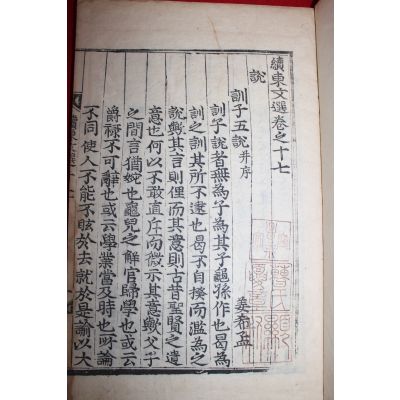 續東文選卷之十七
說
訓子五說 幷序
姜希孟
訓子說者無爲子爲其子龜孫作也曷爲
訓之訓其所不逮也曷不自揆而濫爲之
說歟其言則俚而其意則古昔聖賢之遺
意也何以不敢直斥而微示其意歟父子
之間言猶婉也龜兒之解官歸學也或云
爵祿不可辭也或云學業當及時也所論
不同使人不能不眩於去就於是論以大